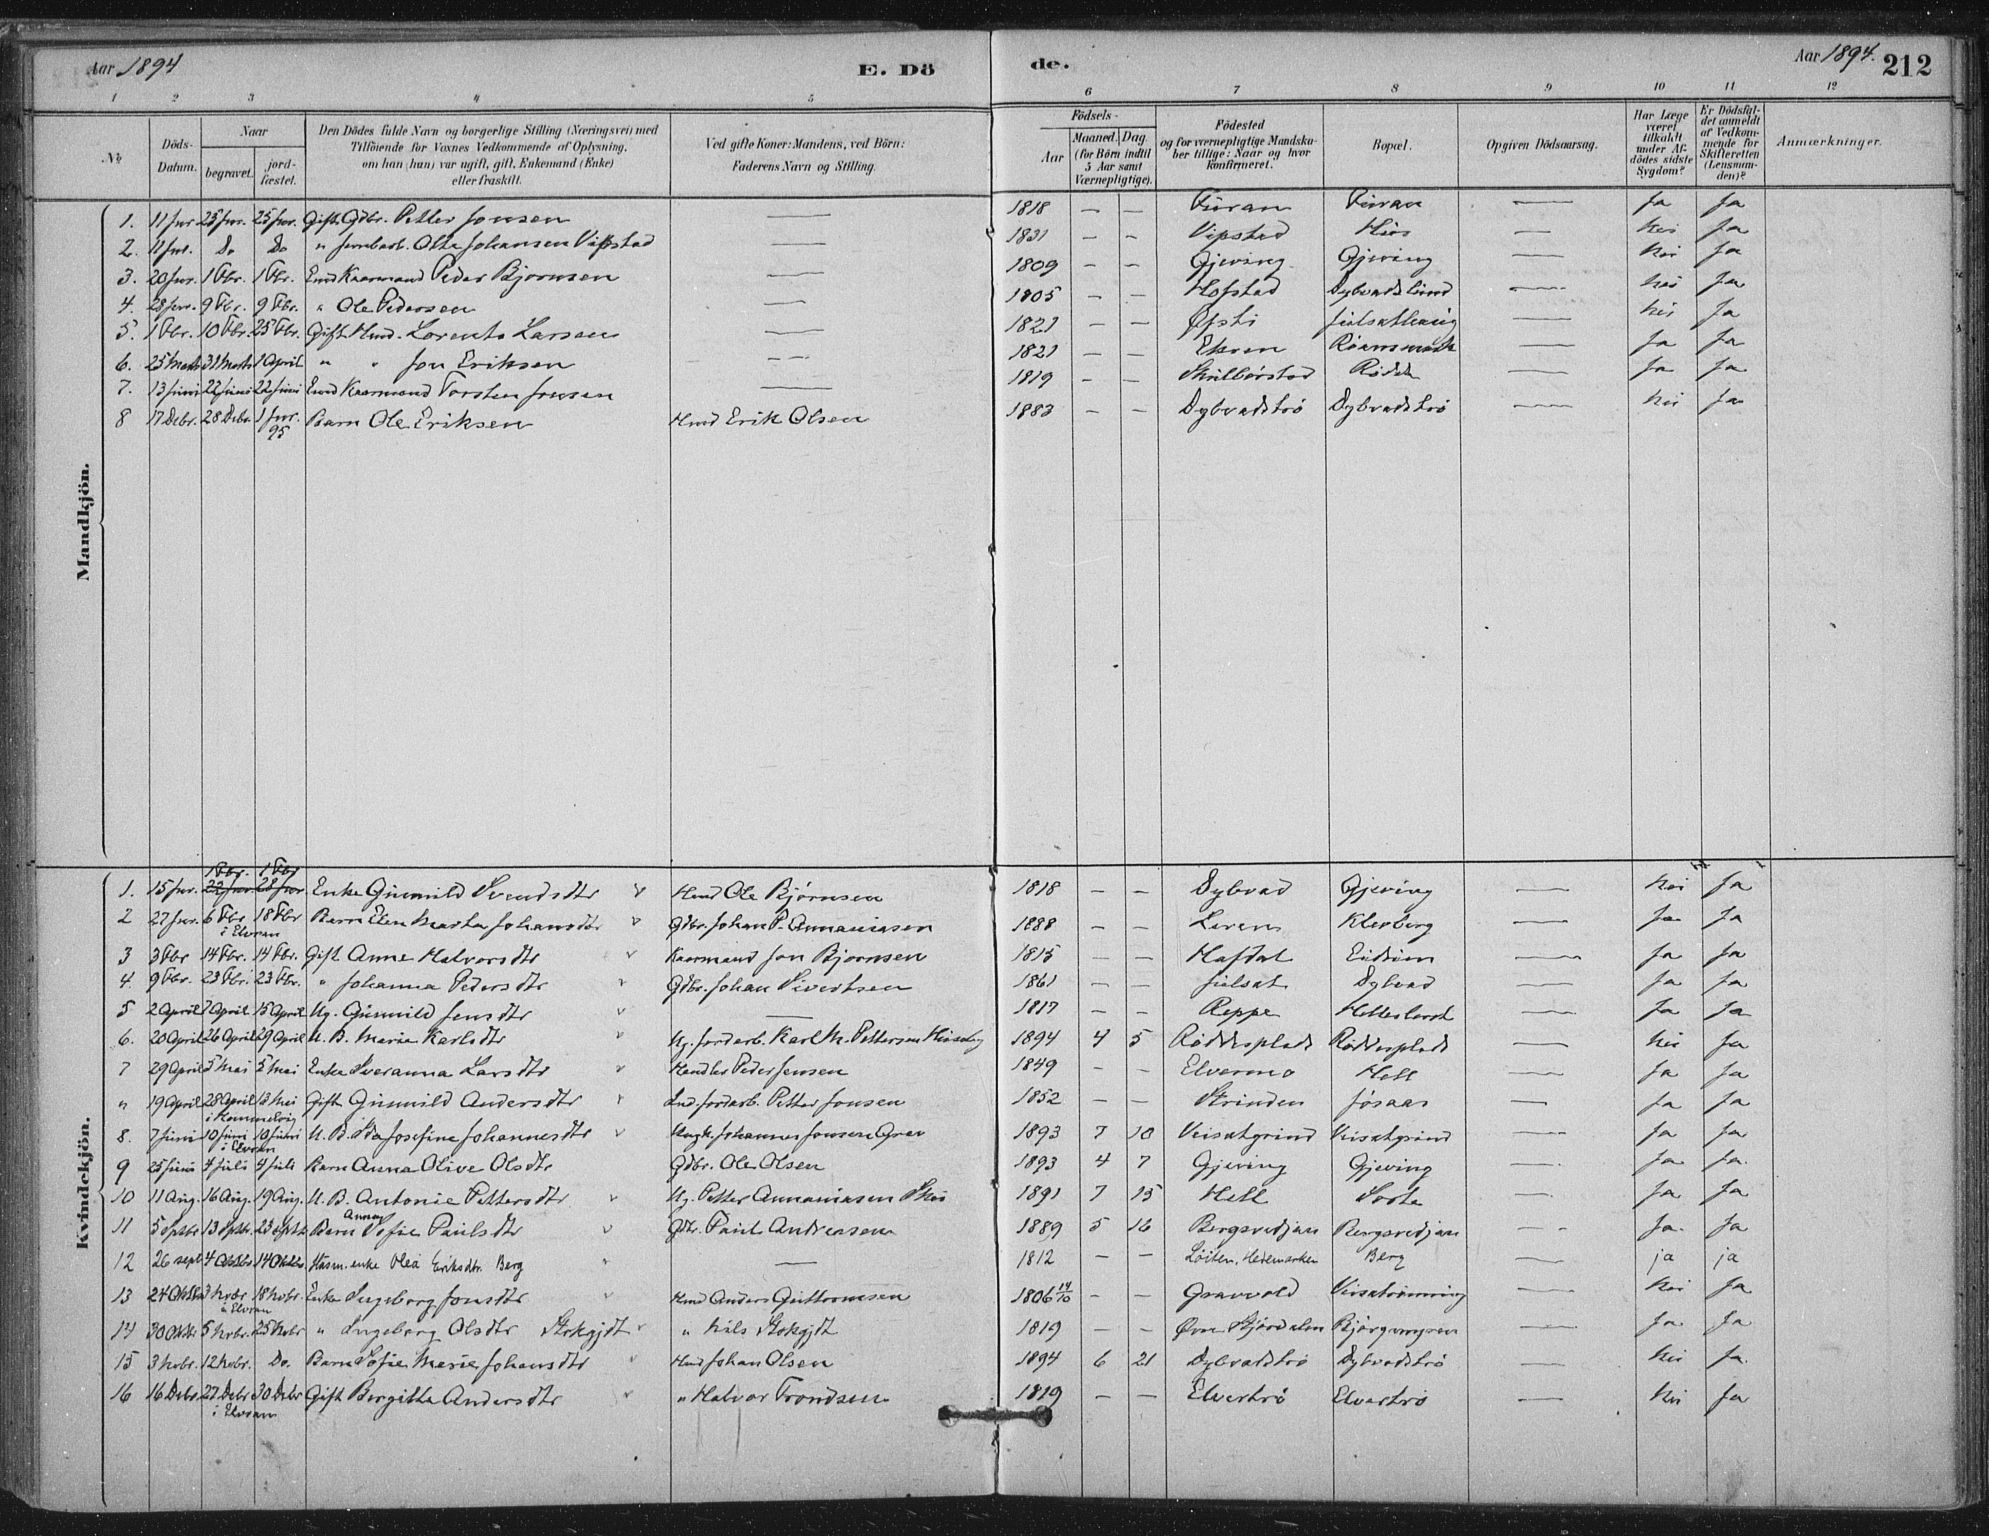 Aar 1894 E. Dö de. Aar 1894. 212
1 2 3 4 5 6 7 8 9 10 11 12
No. Döds-Datum. Naar begravet. jord-fæstet. Den Dödes fulde Navn og borgerlige Stilling (Næringsvei) med Tilföiende for Voxnes Vedkommende af Oplysning, om han (hun) var ugift, gift, Enkemand (Enke) eller fraskilt. Ved gifte Koner: Mandens, ved Börn: Faderens Navn og Stilling. Födsels- Aar Maaned. Dag. (for Börn indtil 5 Aar samt Værnepligtige). Födested og for værnepligtige Mandsku-ber tillige: Naar og hvor konfirmeret. Bopæl. Opgiven Dödsaarsag. Har Læge været tilkaldt under Af-dödes sidste Sygdom? Er Dödsfal-det anmeldt af Vedkom-mende for Skifteretten (Lensman-den)? Anmærkninger.
Mandkjön.
1. 11 Jnr. 25 Jnr. 25 Jnr. Gift Gdbr. Petter Jonsen — 1818 — — Furan Furan — Ja Ja
2. 11 Jnr. Do Do " Jernbarb. Olte Johansen Vipstad — 1831 — — Vipstad — Nei Ja
3. 20 Jnr. 1 Fbr. 1 Fbr. Enkd Kaarmand Peder Bjørnsen — 1809 — — Gjeving Gjeving — Nei Ja
4. 28 Jnr. 9 Fbr. 9 Fbr. " Ole Pedersen — 1805 — — Hofstad Dybvadslund — Nei Ja
5. 1 Fbr. 10 Fbr. 25 Fbr. Gift Hmd. Lorents Larsen — 1821 — — Øfsti — Nei Ja
6. 25 Marts 31 Marts 1 April " " Jon Eriksen — 1821 — — Ekren — Ja Ja
7. 13 Juni 22 Juni 22 Juni Enkd Kaarmand Torsten Jonsen — 1819 — — Skulbørstad Rødde — Ja Ja
8 17 Debr. 28 Debr. 1 Jnr. 95 Barn Ole Eriksen Hmd Erik Olsen 1883 — — Dybvadstrø Dybvadstrø — Nei Ja
Kvindekjön.
1. 15 Jnr. 1 Fbr. 1 Fbr Enke Gunnild Svendsdtr Hmd Ole Bjørnsen 1818 — — Dybvad Gjeving — Nei Ja
2 27 Jnr. 6 Fbr i Elvran 18 Fbr Barn Elen Marta Johansdtr Gdbr. Johan P. Annaniasen 1888 — — Leren Klevberg — Ja Ja
3 3 Fbr 14 Fbr. 14 Fbr. Gift Anne Halvorsdtr Kaarmand Jon Bjørnsen 1815 — — Hafdal Eidum — Ja Ja
4. 9 Fbr. 23 Fbr. 23 Fbr. " Johanna Pedersdtr Gdbr. Johan Sivertsen 1861 — — Julsat Dybvad — Ja Ja
5 2 April 7 April 15 April Ug. Gunnild Jensdtr — 1817 — — Reppe — Ja Ja
6. 20 April 26 April 29 April U. B. Marie Karlsdtr Ug. Jordarb. Karl M. Pettersen 1894 4 5 Røddesplads Røddesplads — Nei Ja
7 29 April 5 Mai 5 Mai Enke Sveranna Larsdtr Handler Peder Jensen 1849 — — Elvermo Hell — Ja Ja
" 19 April 28 April i Hommelvig 13 Mai Gift Gunnild Andersdtr Ind. Jordarb. Petter Jonsen 1852 — — Strinden Jøsaas — Ja Ja
8. 7 Juni 10 Juni i Elvran 10 Juni U. B. Ida Josefine Johannesdtr Ungk. Johannes Jonsen Grav 1893 7 10 Veisatgrind Veisatgrind — Ja Ja
9 25 Juni 4 Juli 4 Juli Barn Anna Olive Olsdtr Gdbr. Ole Olsen 1893 4 7 Gjeving Gjeving — Ja Ja
10 11 Aug. 16 Aug. 19 Aug. U. B. Antonie Pettersdtr Ug. Petter Annaniasen 1891 7 15 Hell — Ja Ja
11 5 Septbr 13 Septbr. 23 Septbr Barn Anna Sofie Paulsdtr Gdbr. Paul Andreasen 1889 5 16 Bergsvedjan Bergsvedjan — Ja Ja
12 26 sept 4 Oktbr 14 Oktbr. Husm. enke Olea Eriksdtr. Berg — 1812 — — Løiten, Hedemarken Berg — ja ja
13 24 Oktbr 3 Novbr i Elvran 18 Novbr. Enke Ingeborg Jonsdtr Hmd Anders Guttormsen 1806 14/10 — — Granvold — Nei Ja
14 30 Oktbr 5 Novbr. 25 Novbr " Ingeborg Olsdtr Stokgjdt " Nils Stokgjdt 1819 — — Øvre Stjørdalen Bjørgmyren — Ja Ja
15 3 Novbr. 12 Novbr. Do. Barn Sofie Marie Johansdtr Hmd Johan Olsen 1894 6 21 Dybvadstrø Dybvadstrø — Nei Ja
16 16 Debr. 27 Debr i Elvran 30 Debr Gift Bergitta Andersdtr " Halvor Trondsen 1819 — — Elvertrø Elvertrø — Nei Ja